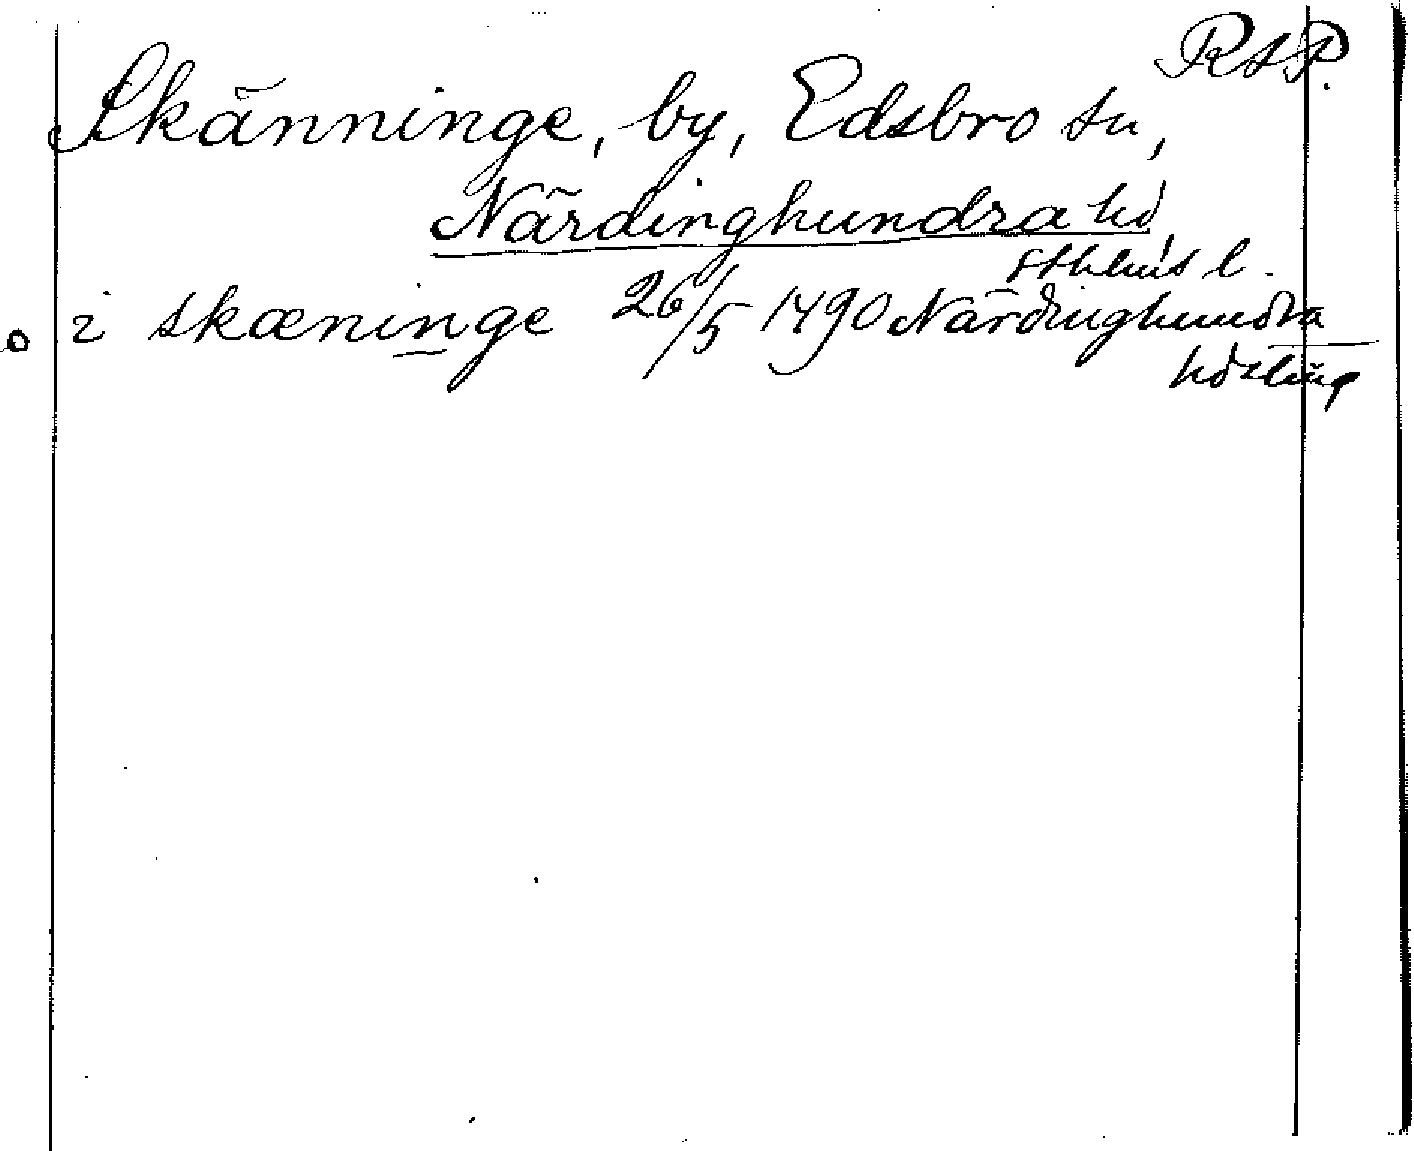 RAP.
Skänninge, by, Edsbro sn,
Närdinghundra hd,
Sthlms l.
o i skæninge 26/5 1490 Närdinghundra
hdsting